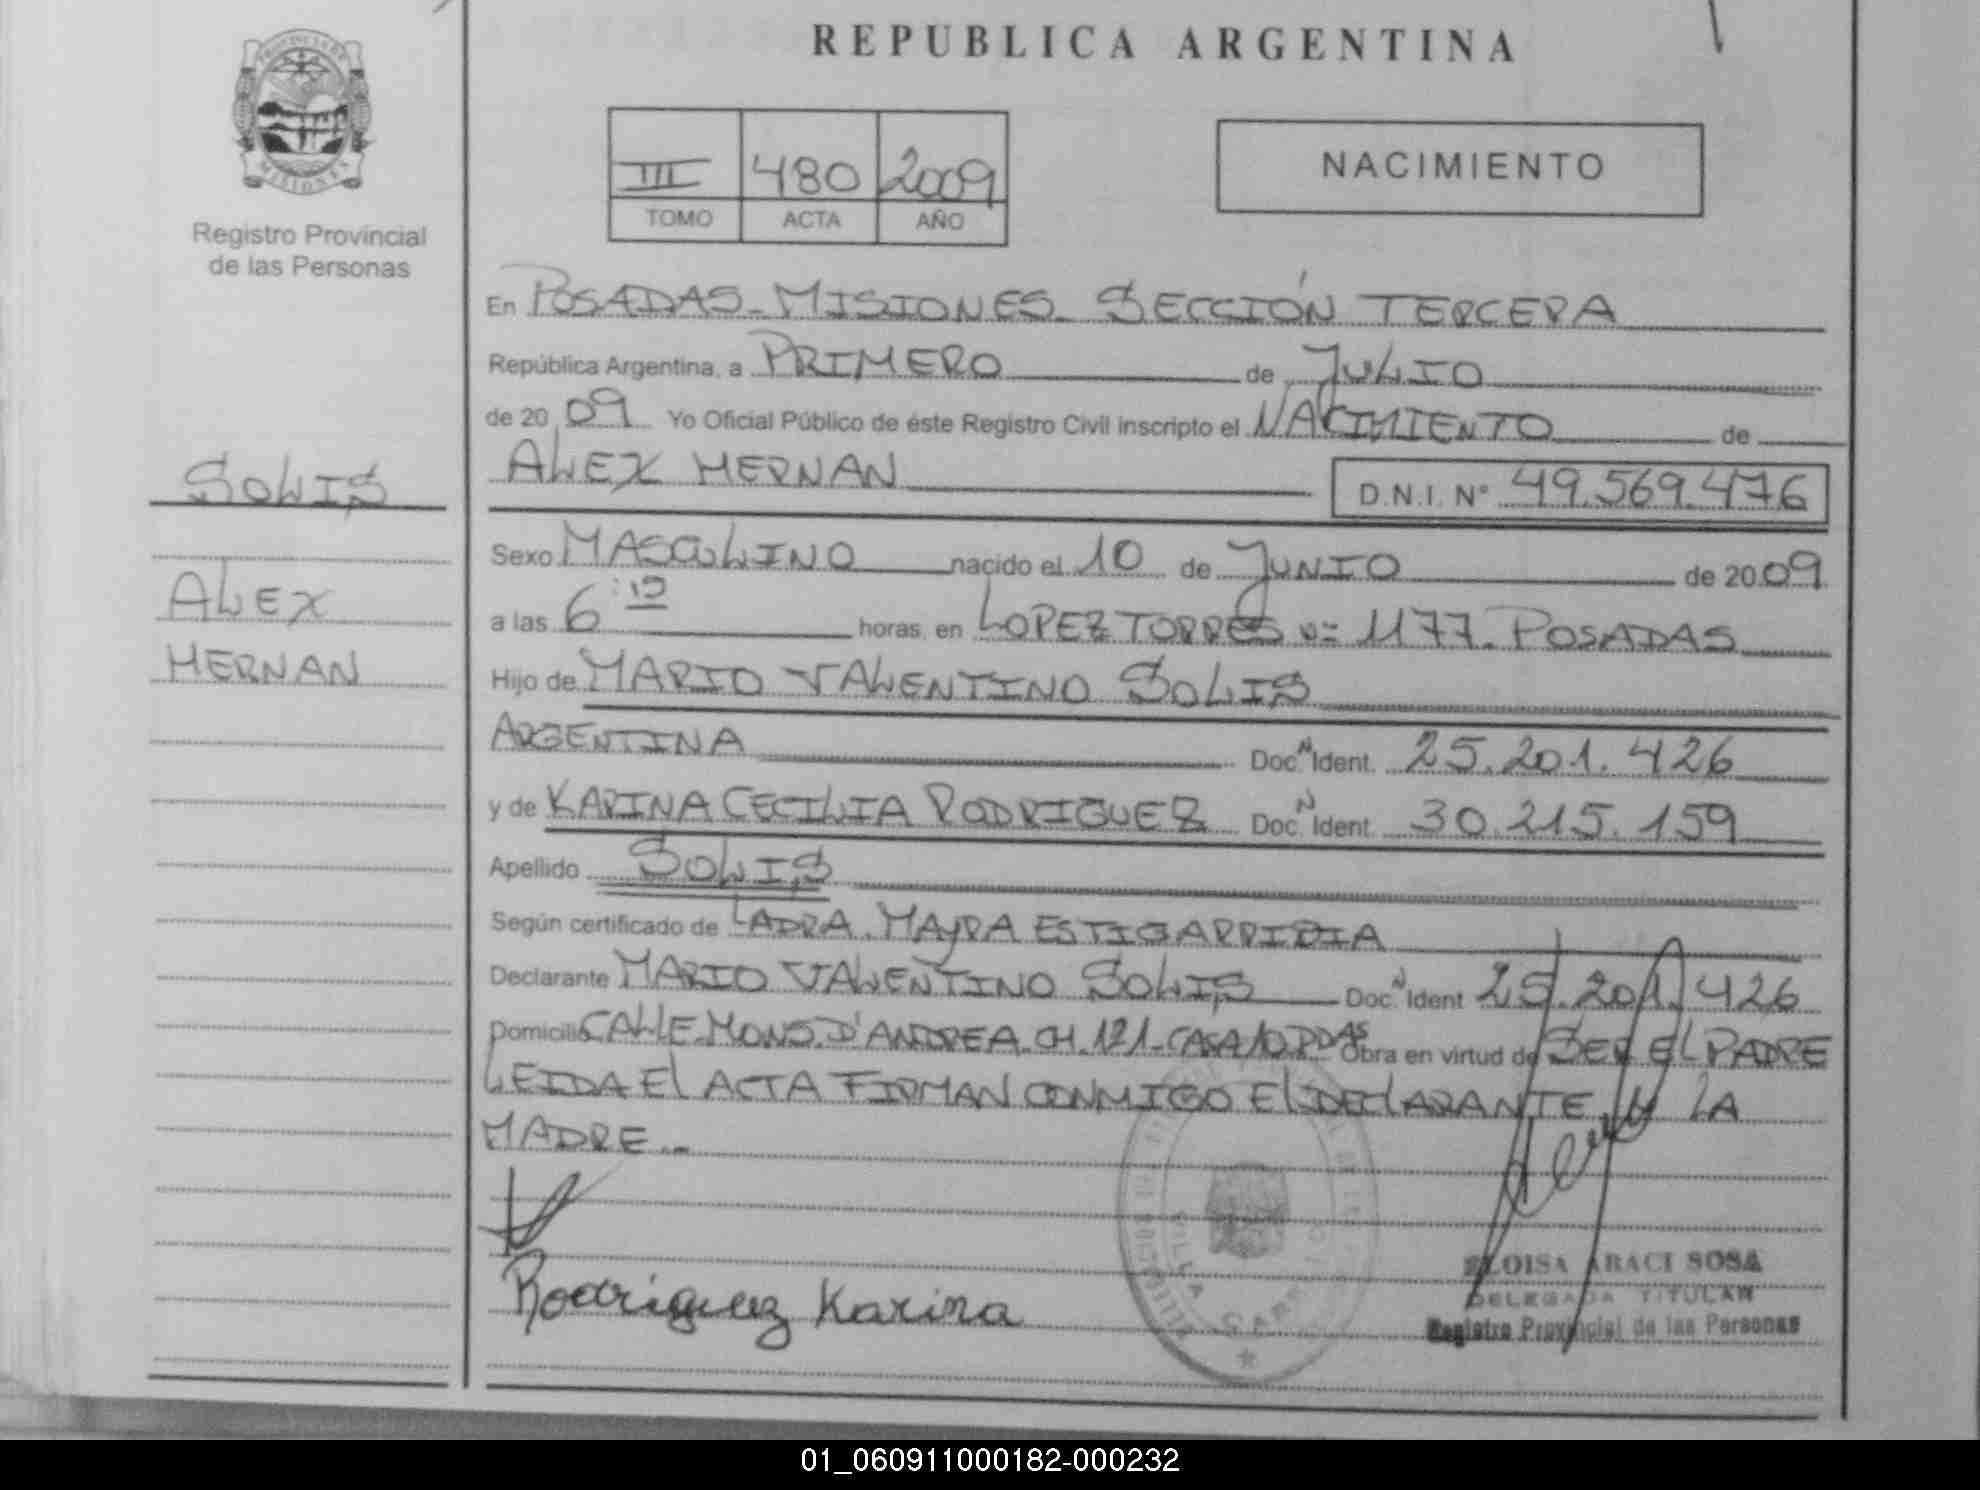 REPUBLICA ARGENTINA
PROVINCIA DE
MISIONES
Registro Provincial
de las Personas
III 480 2009
TOMO ACTA AÑO
NACIMIENTO
En POSADAS - MISIONES - SECCIÓN TERCERA
República Argentina, a PRIMERO de JULIO
de 20 09 Yo Oficial Público de éste Registro Civil inscripto el NACIMIENTO de
ALEX HERNAN D.N.I. Nº 49.569.476
SOLIS
ALEX
HERNAN
Sexo MASCULINO nacido el 10 de JUNIO de 20 09
a las 6 horas, en LOPEZ TORRES nº 1177. POSADAS
Hijo de MARIO VALENTINO SOLIS
ARGENTINA Doc. N Ident. 25.201.426
y de KARINA CECILIA RODRIGUEZ Doc. N Ident. 30.215.159
Apellido SOLIS
Según certificado de LA DRA. MAYRA ESTIGARRIBIA
Declarante MARIO VALENTINO SOLIS Doc. N Ident 25.201.426
Domicilio CALLE MONS. D'ANDREA CH. 121 - CASA 10 PDAS Obra en virtud de SER EL PADRE
LEIDA El ACTA FIRMAN CONMIGO El DEClARANTE y LA
MADRE.-
Rodriguez Karina
VILLA
ELOISA ARACI SOSA
DELEGADA TITULAR
Registro Provincial de las Personas
01_060911000182-000232